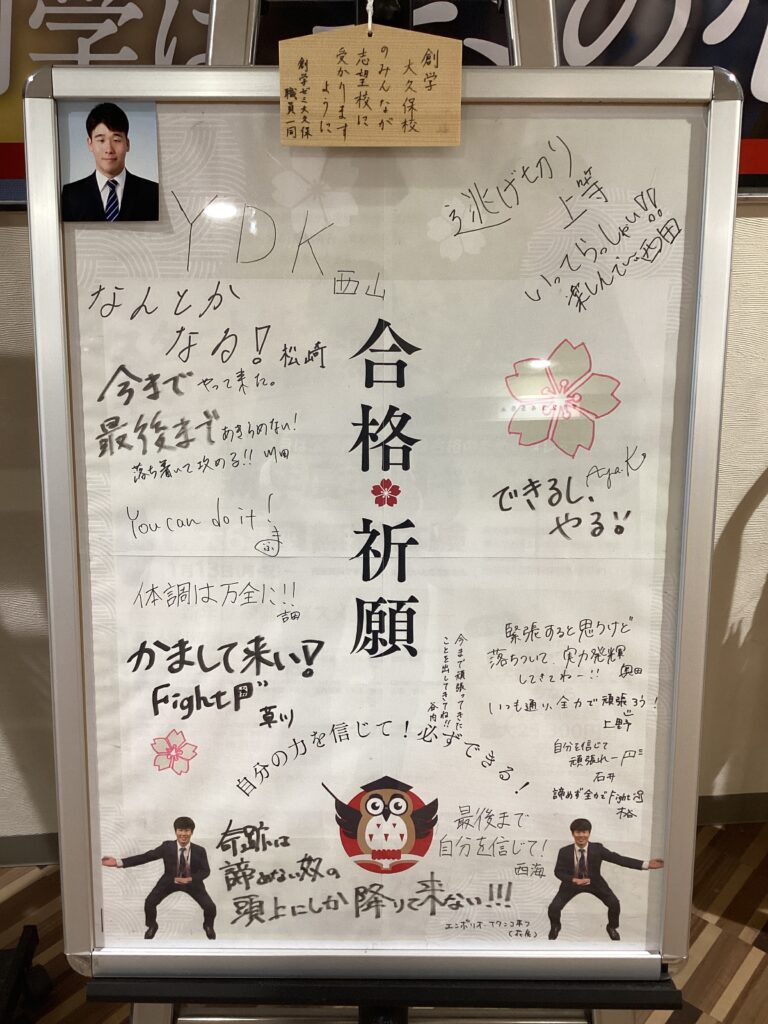 創学
大久保校
のみんなが
志望校に
受かります
ように
創学ゼミ大久保
職員一同
YDK
西山
逃げ切り
上等
いってらっしゃい!!
楽しんで
西田
なんとか
なる!
松崎
今までやって来た。
最後まであきらめない!
落ち着いて攻める!!
合格
祈願
Aya.K
できるし、
やる!!
You can do it!
体調は万全に!!
吉田
かまして来い!
Fight
草川
今まで頑張ってきた
ことを出してきてね!!
谷内
緊張すると思うけど
落ちついて、実力発輝
してきてねー!!
奥田
いつも通り、全力で頑張ろう!
上野
自分を信じて
頑張れー
石井
諦めず全力でFight
自分の力を信じて!必ずできる!
最後まで
自分を信じて!
西海
奇跡は
諦めない奴の
頭上にしか降りて来ない!!!
エンポリオ